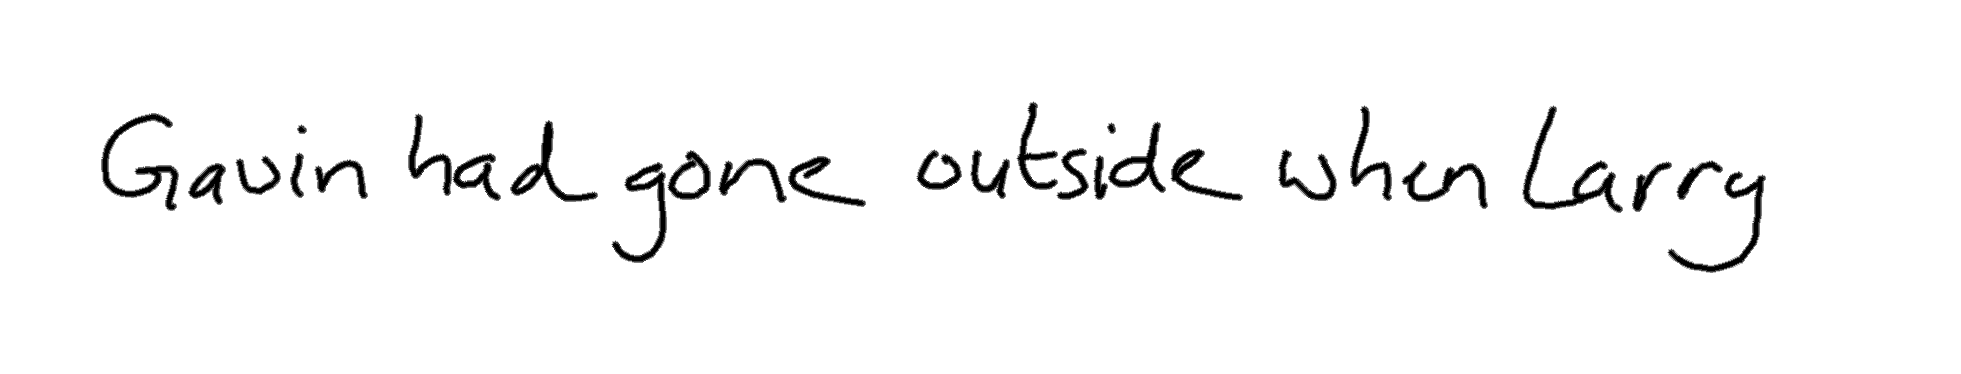 Gavin had gone outside when Larry